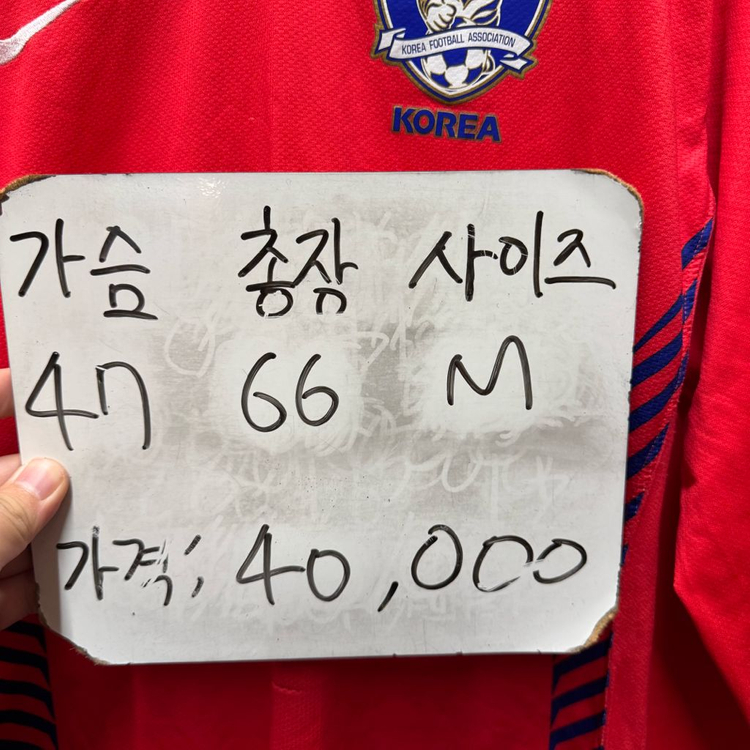 KOREA FOOTBALL ASSOCIATION
KOREA
가슴 총장 사이즈
47 66 M
가격; 40,000